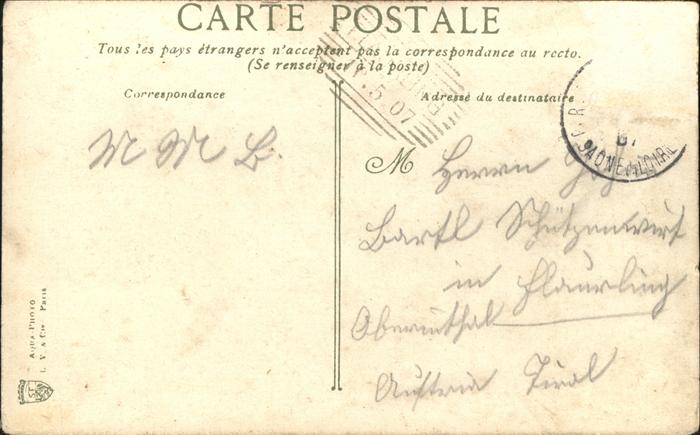 CARTE POSTALE
Tous les pays étrangers n'acceptent pas la correspondance au recto.
(Se renseigner à la poste)
Correspondance
Adresse du destinataire
5 07
SAONE-&-LOIRE
M M B.
M Herrn
Bartl Schützenwirt
in Flaurling
Oberinthal
Austria Tirol
AQUA-PHOTO
L. V. & Cie Paris